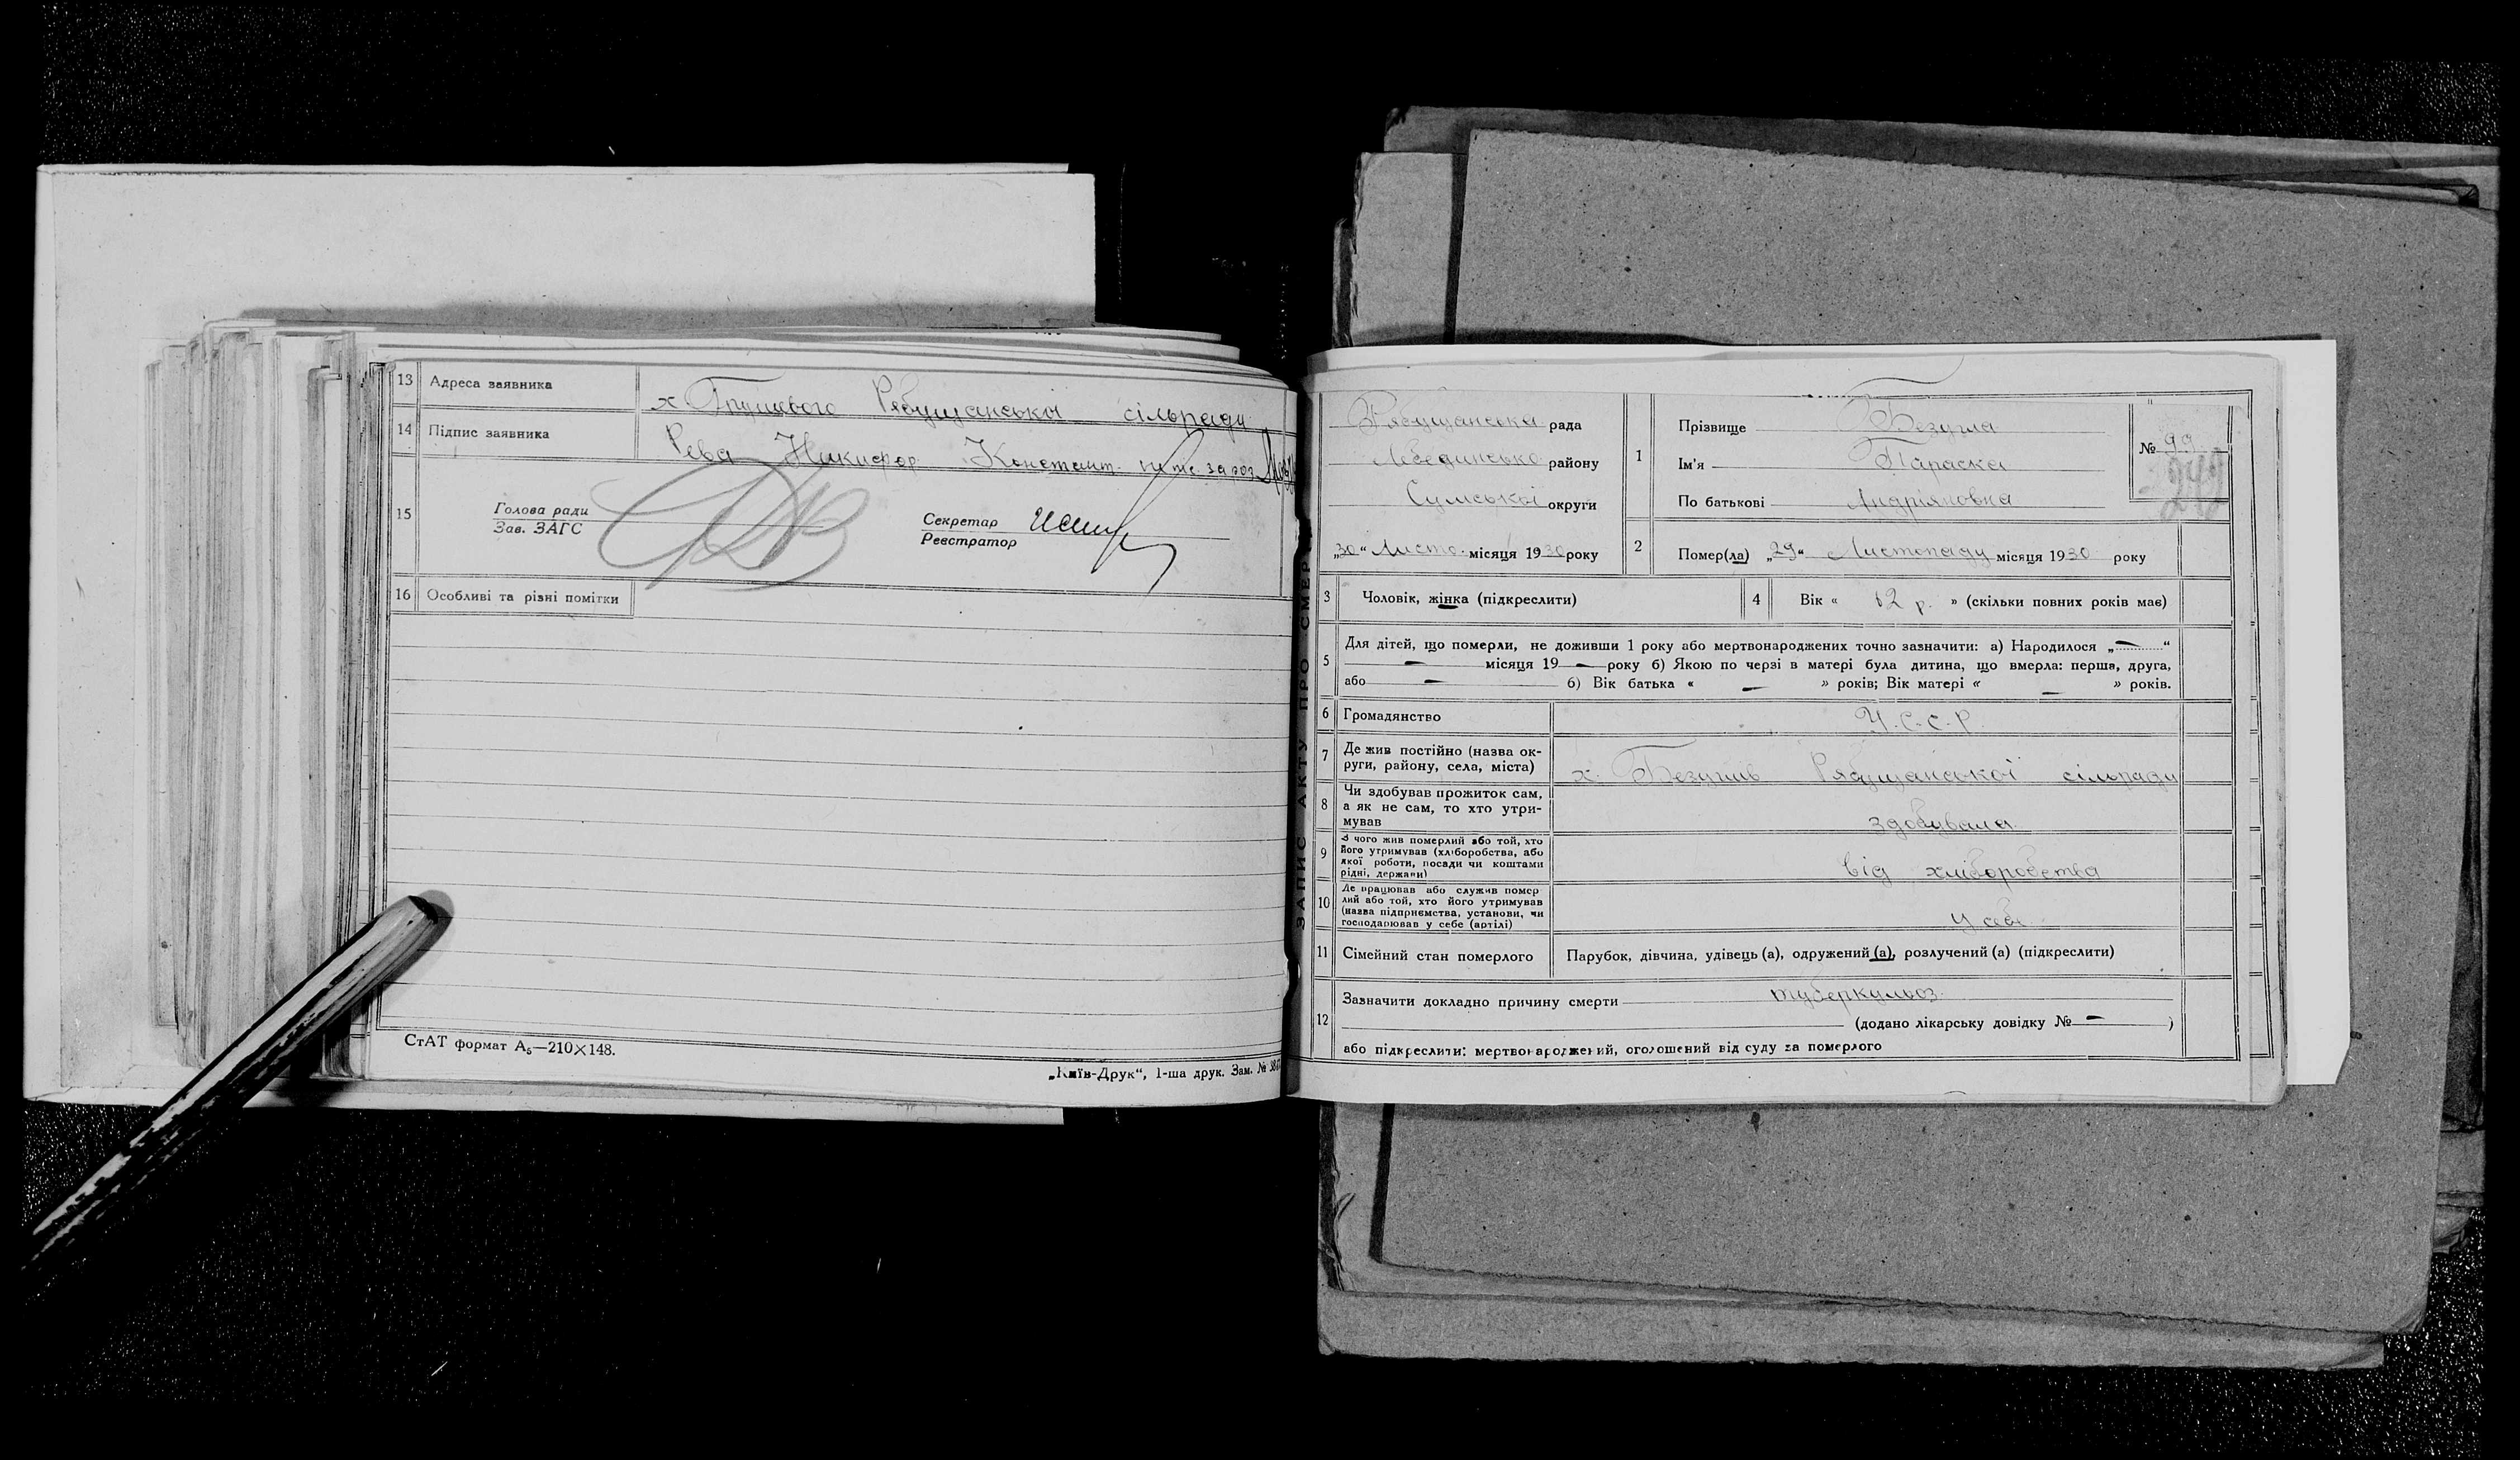 13 Адреса заявника х Грушевого Рябущанської сільради
14 Підпис заявника Рева Никифор Констант.
15 Голова ради
Зав. ЗАГС
Секретар
Реєстратор
16 Особливі та різні помітки
СтАТ формат А₅—210×148.
„Київ-Друк“, 1-ша друк. Зам. №
ЗАПИС АКТУ ПРО СМЕР
Рябущанська рада
Лебединсько району
Сумської округи
„30“ Листо. місяця 1930 року
1 Прізвище Безугла
Ім'я Параска
По батькові Андріяновна
№ 99
2 Помер(ла) „29“ Листопаду місяця 1930 року
3 Чоловік, жінка (підкреслити)
4 Вік « 62 р. » (скільки повних років має)
5 Для дітей, що померли, не доживши 1 року або мертвонароджених точно зазначити: а) Народилося „—“
— місяця 19 — року б) Якою по черзі в матері була дитина, що вмерла: перша, друга,
або — б) Вік батька « — » років; Вік матері « — » років.
6 Громадянство У.С.С.Р.
7 Де жив постійно (назва ок-
руги, району, села, міста) х. Безуглів Рябущанської сільради
8 Чи здобував прожиток сам,
а як не сам, то хто утри-
мував здобувала
9 З чого жив померлий або той, хто
його утримував (хліборобства, або
якої роботи, посади чи коштами
рідні, держави) від хліборобства
10 Де працював або служив помер
лий або той, хто його утримував
(назва підприємства, установи, чи
господарював у себе (артілі) у себе
11 Сімейний стан померлого Парубок, дівчина, удівець (а), одружений (а), розлучений (а) (підкреслити)
12 Зазначити докладно причину смерти туберкульоз
(додано лікарську довідку № — )
або підкреслити: мертвонароджений, оголошений від суду за померлого